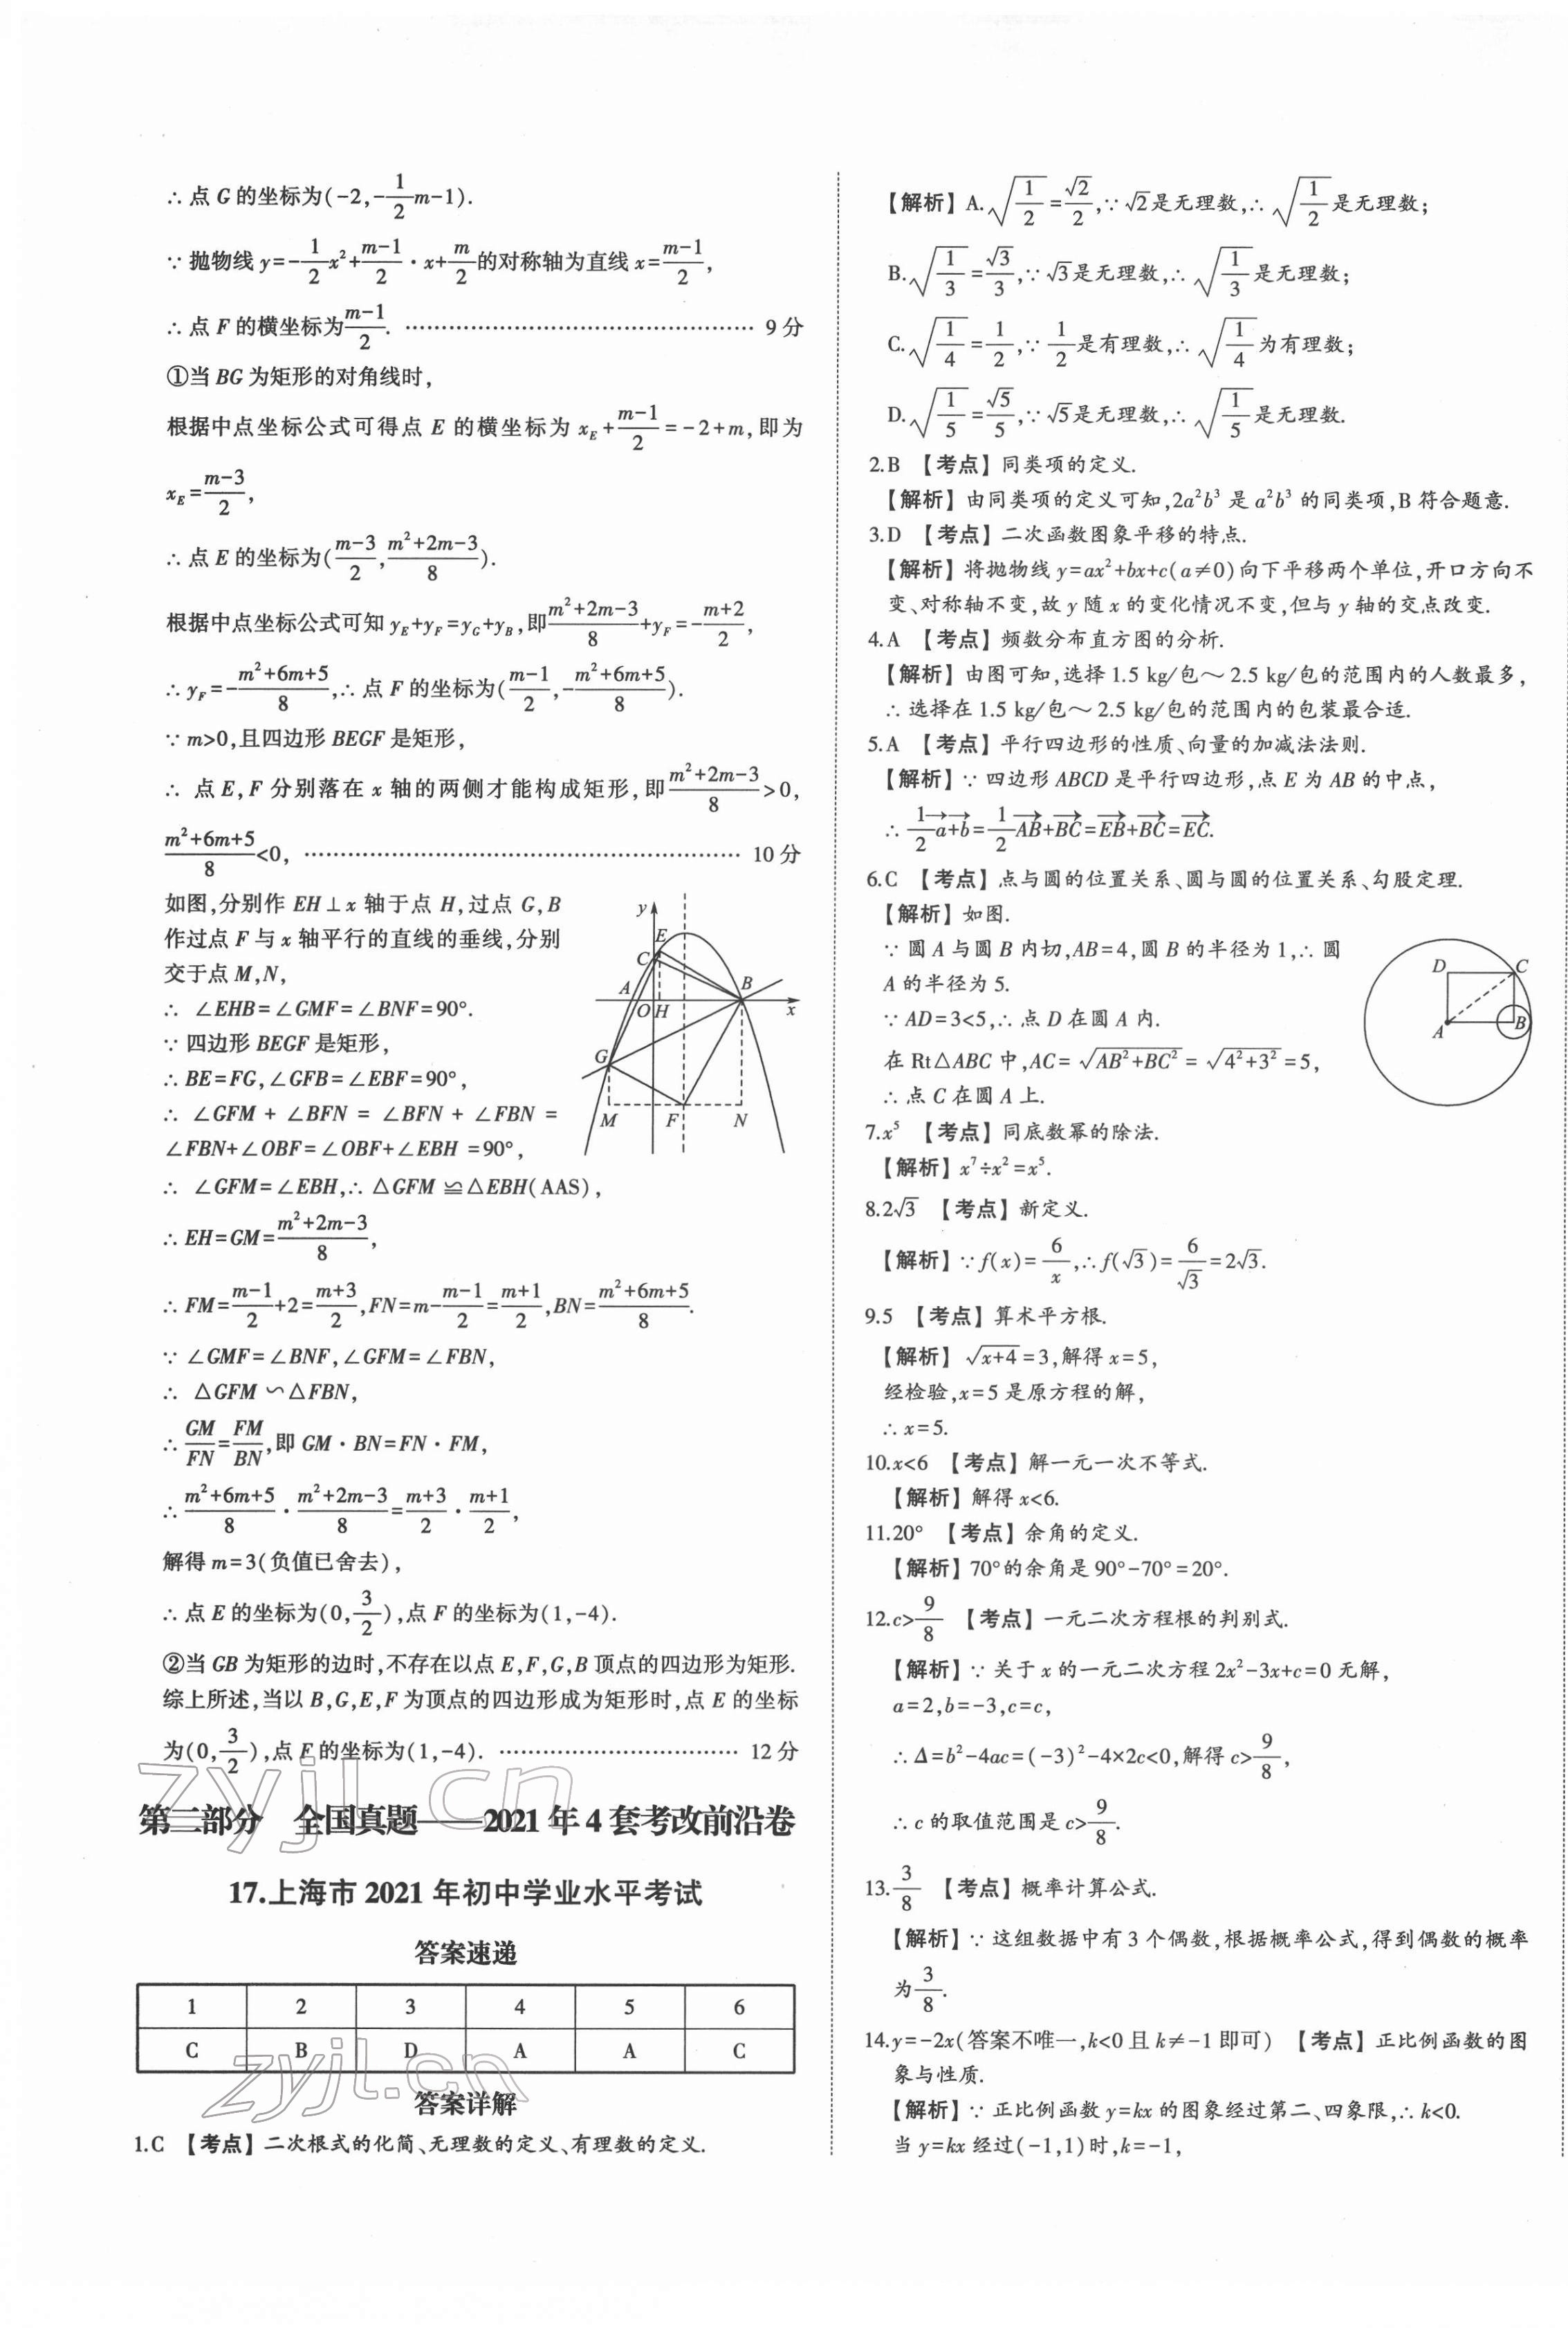 ∴点 G 的坐标为(-2,-1/2m-1).
∵抛物线 y=-1/2x²+(m-1)/2·x+m/2的对称轴为直线 x=(m-1)/2,
∴点 F 的横坐标为(m-1)/2. ………………………………………… 9 分
①当 BG 为矩形的对角线时,
根据中点坐标公式可得点 E 的横坐标为 x_E+(m-1)/2=-2+m,即为
x_E=(m-3)/2,
∴点 E 的坐标为((m-3)/2,(m²+2m-3)/8).
根据中点坐标公式可知 y_E+y_F=y_G+y_B,即(m²+2m-3)/8+y_F=-(m+2)/2,
∴y_F=-(m²+6m+5)/8,∴点 F 的坐标为((m-1)/2,-(m²+6m+5)/8).
∵m>0,且四边形 BEGF 是矩形,
∴ 点 E,F 分别落在 x 轴的两侧才能构成矩形,即(m²+2m-3)/8>0,
(m²+6m+5)/8<0, …………………………………………………… 10 分
如图,分别作 EH⊥x 轴于点 H,过点 G,B
作过点 F 与 x 轴平行的直线的垂线,分别
交于点 M,N,
∴ ∠EHB=∠GMF=∠BNF=90°.
∵四边形 BEGF 是矩形,
∴BE=FG,∠GFB=∠EBF=90°,
∴ ∠GFM + ∠BFN = ∠BFN + ∠FBN =
∠FBN+∠OBF=∠OBF+∠EBH=90°,
y
E
C
A
B
O
H
x
G
M
F
N
∴ ∠GFM=∠EBH,∴△GFM≌△EBH(AAS),
∴EH=GM=(m²+2m-3)/8,
∴FM=(m-1)/2+2=(m+3)/2,FN=m-(m-1)/2=(m+1)/2,BN=(m²+6m+5)/8.
∵∠GMF=∠BNF,∠GFM=∠FBN,
∴ △GFM∽△FBN,
∴GM/FN=FM/BN,即 GM·BN=FN·FM,
∴(m²+6m+5)/8·(m²+2m-3)/8=(m+3)/2·(m+1)/2,
解得 m=3(负值已舍去),
∴点 E 的坐标为(0,3/2),点 F 的坐标为(1,-4).
②当 GB 为矩形的边时,不存在以点 E,F,G,B 顶点的四边形为矩形.
综上所述,当以 B,G,E,F 为顶点的四边形成为矩形时,点 E 的坐标
为(0,3/2),点 F 的坐标为(1,-4). …………………………… 12 分
zyjl.cn
第二部分 全国真题——2021 年 4 套考改前沿卷
17.上海市 2021 年初中学业水平考试
答案速递
1 2 3 4 5 6
C B D A A C
zyjl.cn
答案详解
1.C 【考点】二次根式的化简、无理数的定义、有理数的定义.
【解析】A.√(1/2)=√2/2,∵√2是无理数,∴√(1/2)是无理数;
B.√(1/3)=√3/3,∵√3是无理数,∴√(1/3)是无理数;
C.√(1/4)=1/2,∵1/2是有理数,∴√(1/4)为有理数;
D.√(1/5)=√5/5,∵√5是无理数,∴√(1/5)是无理数.
2.B 【考点】同类项的定义.
【解析】由同类项的定义可知,2a²b³ 是 a²b³ 的同类项,B 符合题意.
3.D 【考点】二次函数图象平移的特点.
【解析】将抛物线 y=ax²+bx+c(a≠0)向下平移两个单位,开口方向不
变、对称轴不变,故 y 随 x 的变化情况不变,但与 y 轴的交点改变.
4.A 【考点】频数分布直方图的分析.
【解析】由图可知,选择 1.5 kg/包~2.5 kg/包的范围内的人数最多,
∴选择在 1.5 kg/包~2.5 kg/包的范围内的包装最合适.
5.A 【考点】平行四边形的性质、向量的加减法法则.
【解析】∵四边形 ABCD 是平行四边形,点 E 为 AB 的中点,
∴1/2a→+b→=1/2AB→+BC→=EB→+BC→=EC→.
6.C 【考点】点与圆的位置关系、圆与圆的位置关系、勾股定理.
【解析】如图.
∵圆 A 与圆 B 内切,AB=4,圆 B 的半径为 1,∴圆
A 的半径为 5.
∵AD=3<5,∴点 D 在圆 A 内.
在 Rt△ABC 中,AC=√(AB²+BC²)=√(4²+3²)=5,
∴点 C 在圆 A 上.
D
C
A
B
7.x⁵ 【考点】同底数幂的除法.
【解析】x⁷÷x²=x⁵.
8.2√3 【考点】新定义.
【解析】∵f(x)=6/x,∴f(√3)=6/√3=2√3.
9.5 【考点】算术平方根.
【解析】√(x+4)=3,解得 x=5,
经检验,x=5 是原方程的解,
∴x=5.
10.x<6 【考点】解一元一次不等式.
【解析】解得 x<6.
11.20° 【考点】余角的定义.
【解析】70°的余角是 90°-70°=20°.
12.c>9/8 【考点】一元二次方程根的判别式.
【解析】∵关于 x 的一元二次方程 2x²-3x+c=0 无解,
a=2,b=-3,c=c,
∴Δ=b²-4ac=(-3)²-4×2c<0,解得 c>9/8,
∴c 的取值范围是 c>9/8.
13.3/8 【考点】概率计算公式.
【解析】∵这组数据中有 3 个偶数,根据概率公式,得到偶数的概率
为3/8.
14.y=-2x(答案不唯一,k<0 且 k≠-1 即可) 【考点】正比例函数的图
象与性质.
【解析】∵正比例函数 y=kx 的图象经过第二、四象限,∴k<0.
当 y=kx 经过(-1,1)时,k=-1,